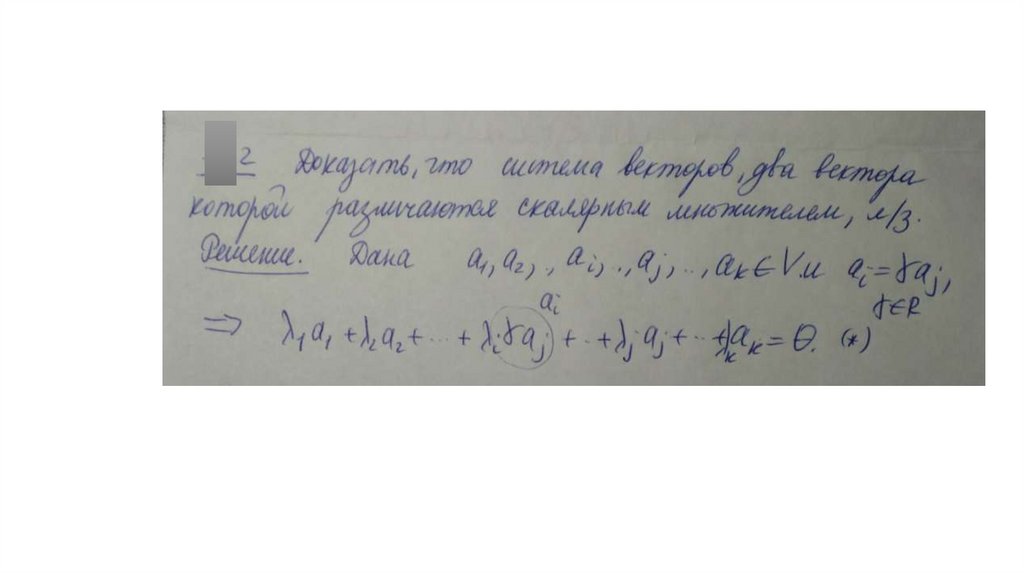 2 Доказать, что система векторов, два вектора
которой различаются скалярным множителем, л/з.
Решение. Дана a₁, a₂, ., aᵢ, ., aⱼ, .., aₖ ∈ V. и aᵢ = γaⱼ,
γ∈R
aᵢ
⇒ λ₁a₁ + λ₂a₂ + ... + λᵢγaⱼ + .. + λⱼaⱼ + ... + λₖaₖ = θ. (*)